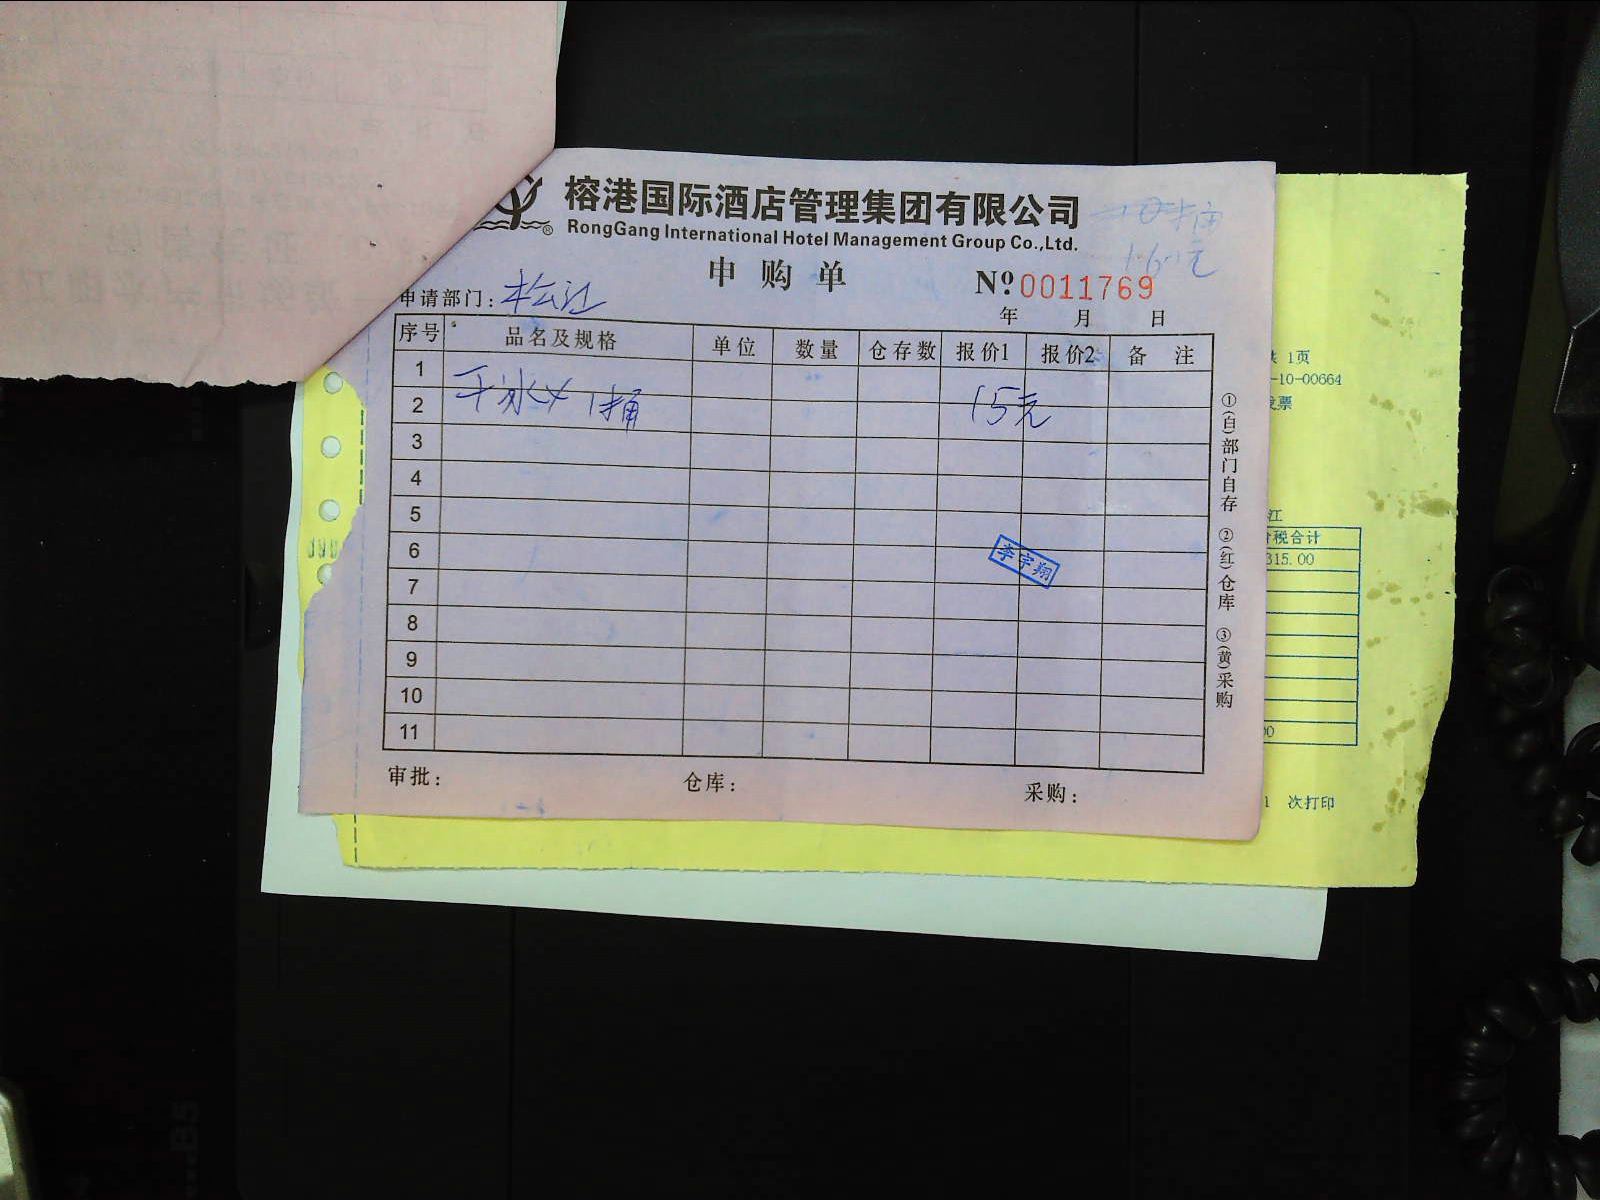 榕港国际酒店管理集团有限公司
RongGang International Hotel Management Group Co.,Ltd.
申购单
№ 0011769
申请部门: 松江
年 月 日
序号 品名及规格 单位 数量 仓存数 报价1 报价2 备 注
1
2 干冰 1桶 15元
3
4
5
6
7
8
9
10
11
李宇翔
审批: 仓库: 采购:
①(白)部门自存 ②(红)仓库 ③(黄)采购
1页
-10-00664
发票
江
价税合计
315.00
00
1 次打印